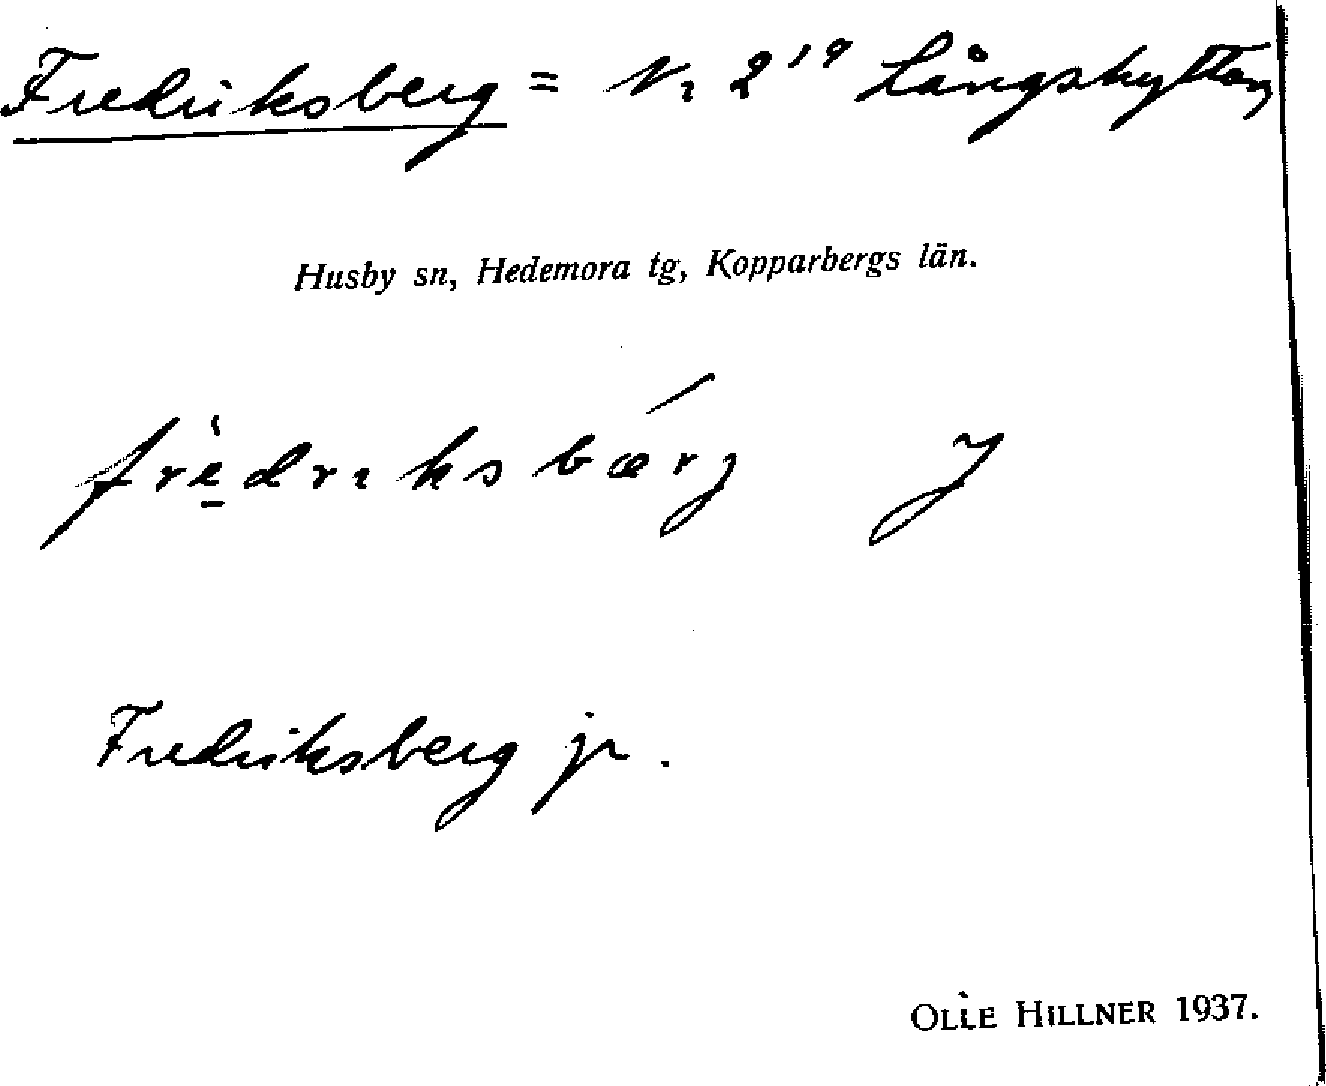 Fredriksberg = Nr 2¹⁹ Långshyttan
Husby sn, Hedemora tg, Kopparbergs län.
fredrɩksbærj J
Fredriksberg jr.
OLLE HILLNER 1937.